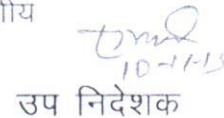 ीय
10-11-15
उप निदेशक